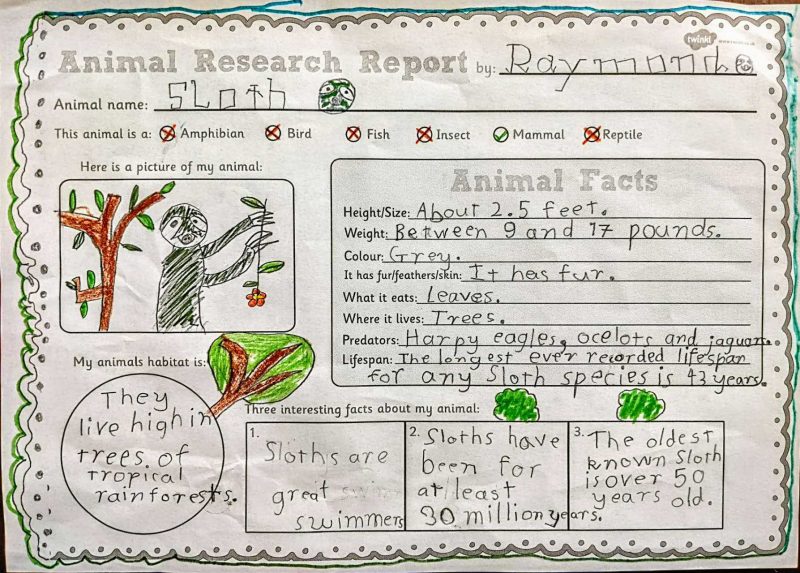 twinkl www.twinkl.co.uk
Animal Research Report by: Raymond
Animal name: Sloth
This animal is a: Amphibian Bird Fish Insect Mammal Reptile
Here is a picture of my animal:
Animal Facts
Height/Size: About 2.5 feet.
Weight: Between 9 and 17 pounds.
Colour: Grey.
It has fur/feathers/skin: It has fur.
What it eats: Leaves.
Where it lives: Trees.
Predators: Harpy eagles, ocelots and jaguars.
Lifespan: The longest ever recorded lifespan
for any Sloth species is 43 years.
My animals habitat is:
They
live high in
trees. of
tropical
rainforests.
Three interesting facts about my animal:
1.
Sloths are
great swim
swimmers
2. Sloths have
been for
at least
30 million years.
3. The oldest
known Sloth
is over 50
years old.